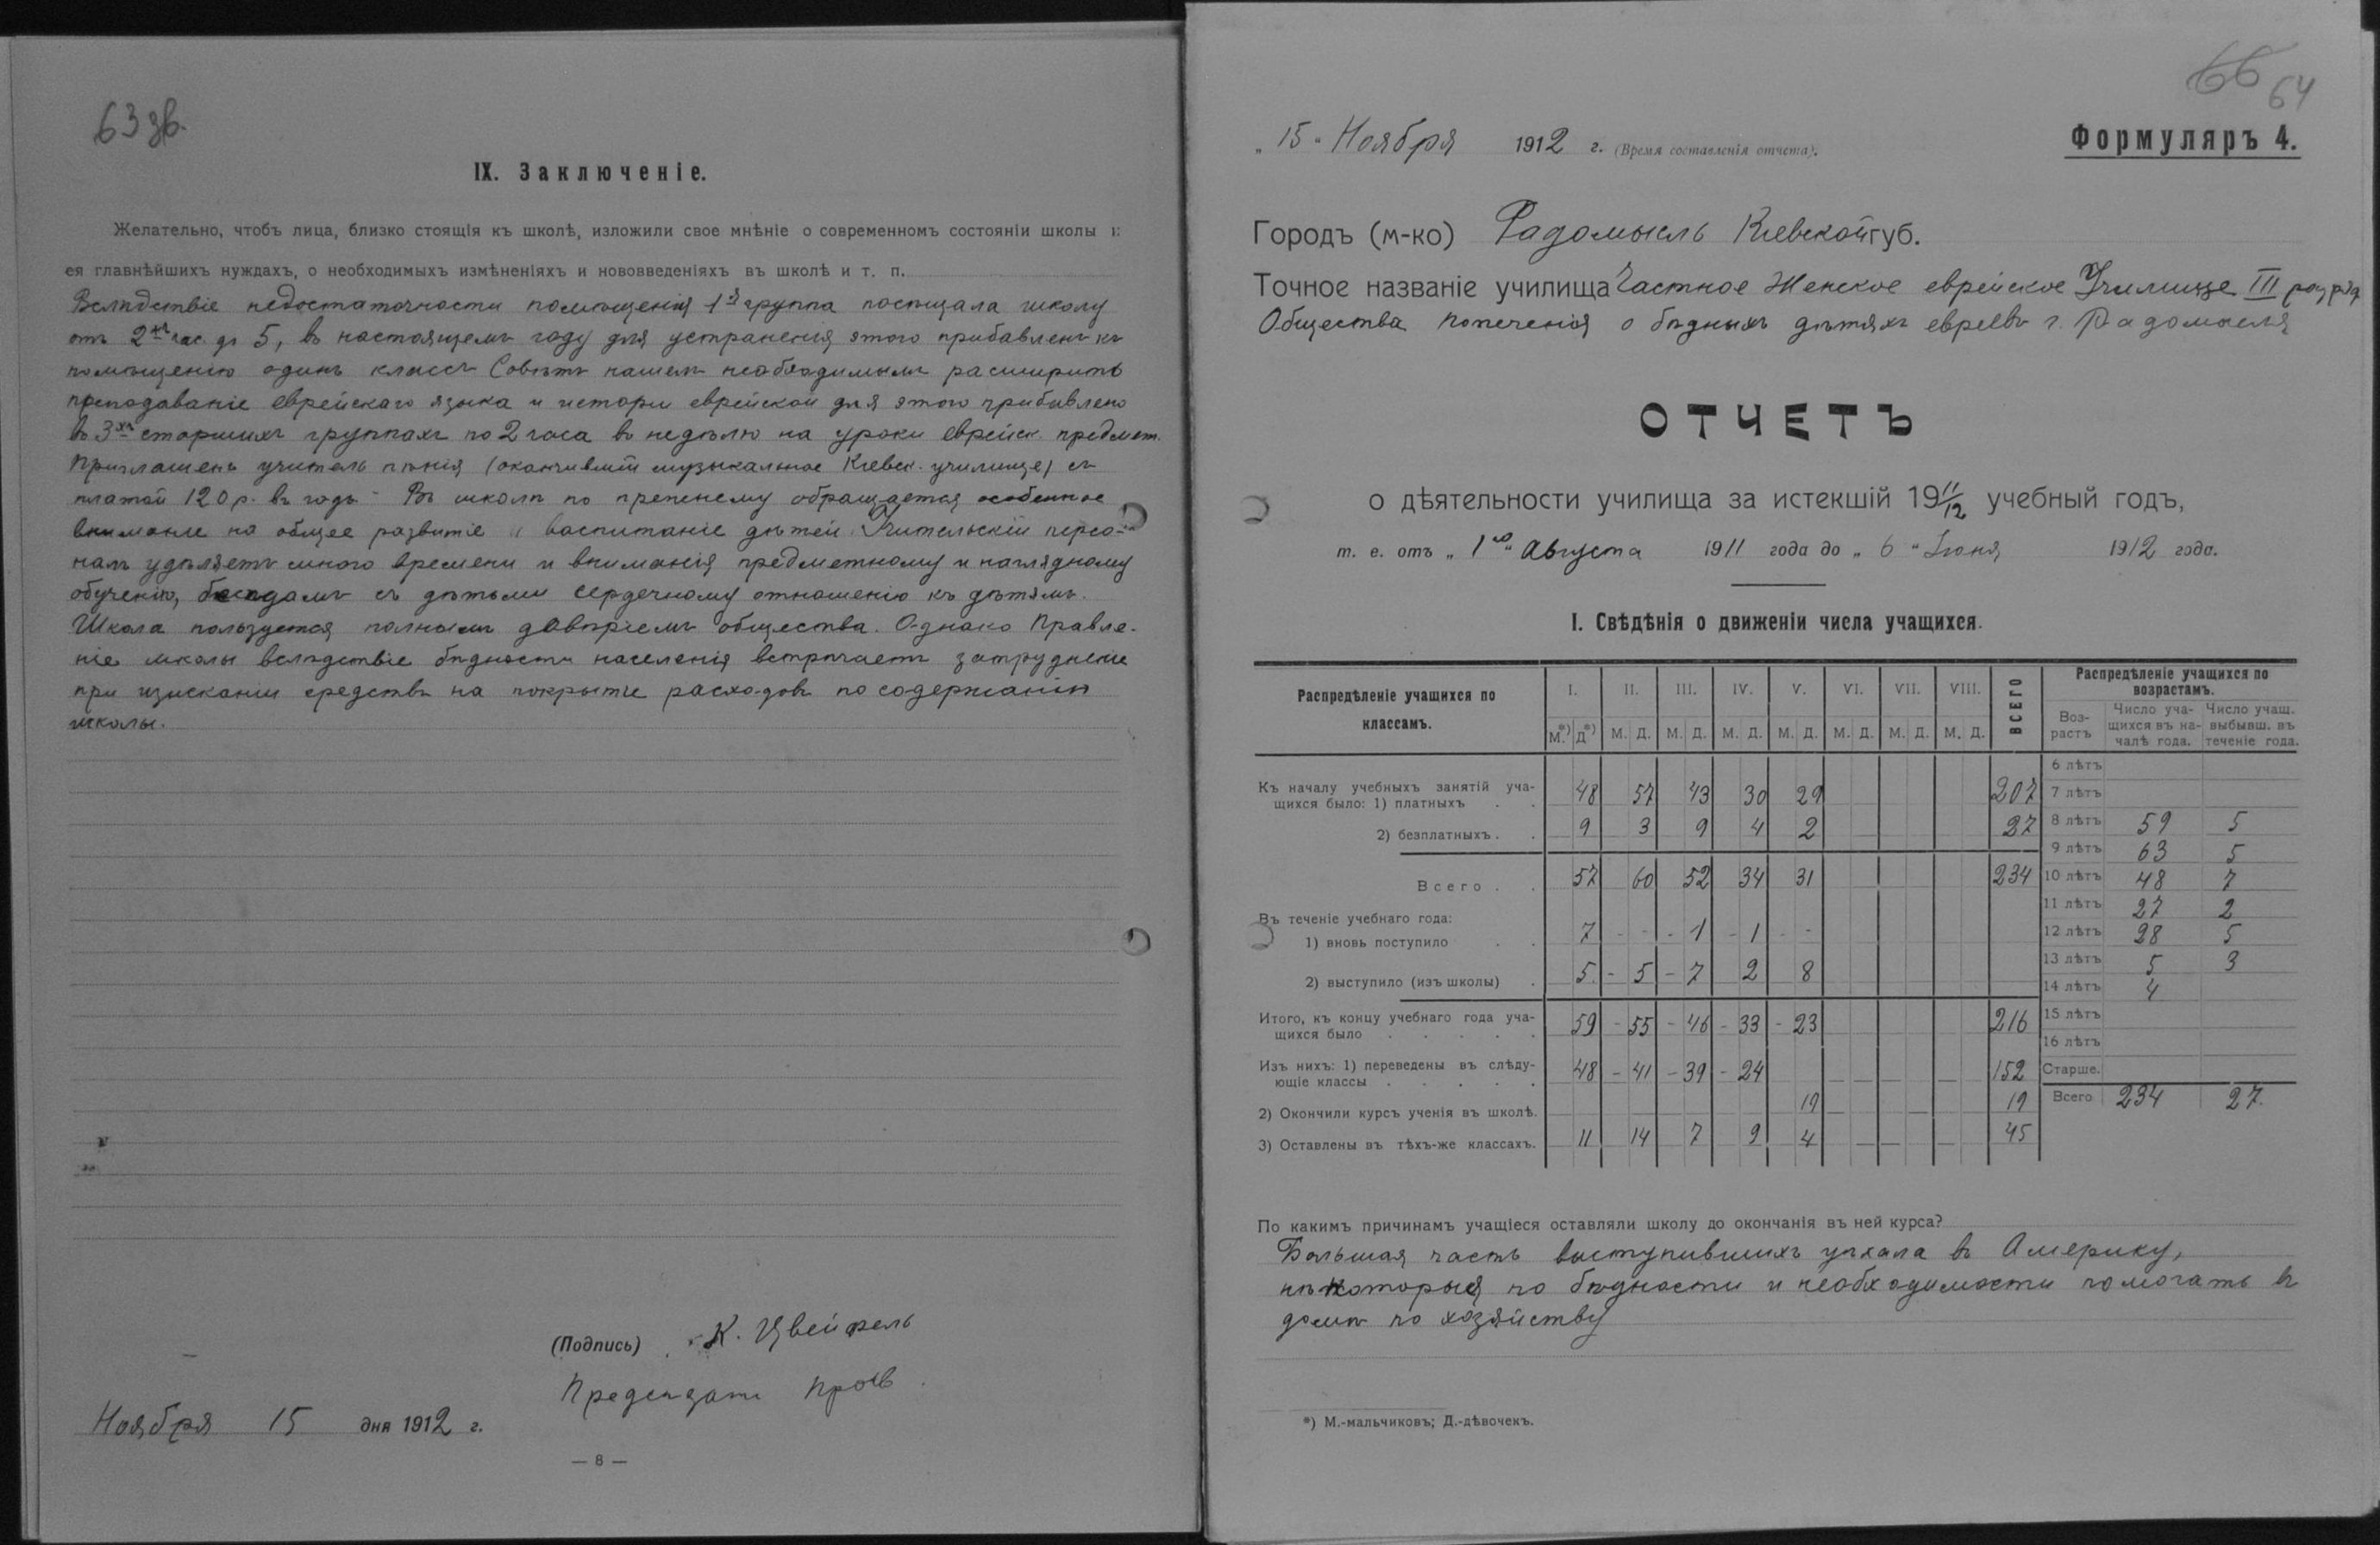 63 зв.
IX. Заключеніе.
Желательно, чтобъ лица, близко стоящія къ школѣ, изложили свое мнѣніе о современномъ состояніи школы и
ея главнѣйшихъ нуждахъ, о необходимыхъ измѣненіяхъ и нововведеніяхъ въ школѣ и т. п.
Вслѣдствіе недостаточности помѣщенія 1я группа посѣщала школу
отъ 2хъ час. до 5, въ настоящемъ году для устраненія этого прибавленъ къ
помѣщенію одинъ классъ Совѣтъ нашелъ необходимымъ расширить
преподаваніе еврейскаго языка и исторіи еврейской для этого прибавлено
въ 3хъ старшихъ группахъ по 2 часа въ недѣлю на уроки еврейск. предмет.
Приглашенъ учитель пѣнія (окончившій музыкальное Кіевск. училище) съ
платой 120 р. въ годъ - Въ школѣ по прежнему обращается особенное
вниманіе на общее развитіе и воспитаніе дѣтей. Учительскій персо-
налъ удѣляетъ много времени и вниманія предметному и наглядному
обученію, бесѣдамъ съ дѣтьми сердечному отношенію къ дѣтямъ.
Школа пользуется полнымъ довѣріемъ общества. Однако Правле-
ніе школы вслѣдствіе бѣдности населенія встрѣчаетъ затрудненіе
при изысканіи средствъ на покрытіе расходовъ по содержанію
школы.
(Подпись) К. Цвейфель
Предсѣдат. Прав
Ноября 15 дня 1912 г.
— 8 —
66 64
„ 15 " Ноября 1912 г. (Время составленія отчета). Формуляръ 4.
Городъ (м-ко) Радомысль Кіевской губ.
Точное названіе училища Частное Женское еврейское Училище III разряд
Общества попеченія о бѣдныхъ дѣтяхъ евреевъ г. Радомысля
ОТЧЕТЪ
о дѣятельности училища за истекшій 19 11/12 учебный годъ,
т. е. отъ „ 1го " Августа 1911 года до „ 6 " Іюня 1912 года.
I. Свѣдѣнія о движеніи числа учащихся.
Распредѣленіе учащихся по классамъ. I. II. III. IV. V. VI. VII. VIII. ВСЕГО
М.*) Д.*) М. Д. М. Д. М. Д. М. Д. М. Д. М. Д. М. Д.
Къ началу учебныхъ занятій уча-
щихся было: 1) платныхъ . . 48 57 43 30 29 207
2) безплатныхъ . . 9 3 9 4 2 27
Всего . . 57 60 52 34 31 234
Въ теченіе учебнаго года:
1) вновь поступило . . 7 - - - 1 - 1 - -
2) выступило (изъ школы) . 5 - 5 - 7 2 8
Итого, къ концу учебнаго года уча-
щихся было . . . . . 59 - 55 - 46 - 33 - 23 216
Изъ нихъ: 1) переведены въ слѣду-
ющіе классы . . . . . 48 - 41 - 39 - 24 152
2) Окончили курсъ ученія въ школѣ. 19 19
3) Оставлены въ тѣхъ-же классахъ. 11 14 7 9 4 45
Распредѣленіе учащихся по
возрастамъ.
Воз-
растъ
Число уча-
щихся въ на-
чалѣ года.
Число учащ.
выбывш. въ
теченіе года.
6 лѣтъ
7 лѣтъ
8 лѣтъ 59 5
9 лѣтъ 63 5
10 лѣтъ 48 7
11 лѣтъ 27 2
12 лѣтъ 28 5
13 лѣтъ 5 3
14 лѣтъ 4
15 лѣтъ
16 лѣтъ
Старше.
Всего 234 27.
По какимъ причинамъ учащіеся оставляли школу до окончанія въ ней курса?
Большая часть выступившихъ уѣхала въ Америку,
нѣкоторыя по бѣдности и необходимости помогать въ
домѣ по хозяйству
*) М.-мальчиковъ; Д.-дѣвочекъ.